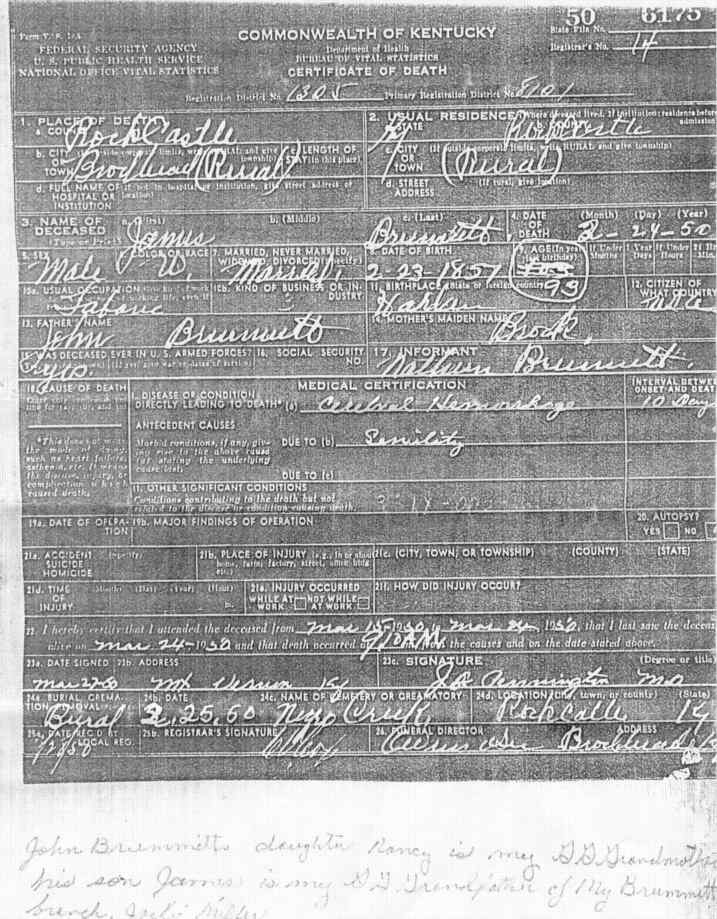 Form V. S. 1-A
FEDERAL SECURITY AGENCY
U. S. PUBLIC HEALTH SERVICE
NATIONAL OFFICE VITAL STATISTICS
COMMONWEALTH OF KENTUCKY
Department of Health
BUREAU OF VITAL STATISTICS
CERTIFICATE OF DEATH
50 6175
State File No.
Registrar's No. 14
Registration District No. 1305 Primary Registration District No.
1. PLACE OF DEATH
a. COUNTY RockCastle
2. USUAL RESIDENCE (Where deceased lived. If institution: residence before admission
a. STATE Ky Rockcastle
b. CITY OR TOWN Brodhead (Rural) LENGTH OF STAY (in this place)
c. CITY (If outside corporate limits, write RURAL and give township)
OR TOWN (Rural)
d. FULL NAME OF (If not in hospital or institution, give street address or location)
HOSPITAL OR INSTITUTION
d. STREET ADDRESS (If rural, give location)
3. NAME OF DECEASED (Type or Print)
a. (First) James
b. (Middle)
c. (Last) Brummett
4. DATE OF DEATH (Month) (Day) (Year) 24-50
5. SEX Male
COLOR OR RACE W.
7. MARRIED, NEVER MARRIED, WIDOWED, DIVORCED (Specify) Married
8. DATE OF BIRTH 2-23-1857
9. AGE (In years last birthday) 93
10a. USUAL OCCUPATION
10b. KIND OF BUSINESS OR INDUSTRY
11. BIRTHPLACE (State or foreign country) Harlan
12. CITIZEN OF WHAT COUNTRY
13. FATHER'S NAME
John Brummett
14. MOTHER'S MAIDEN NAME
Brock
15. WAS DECEASED EVER IN U. S. ARMED FORCES?
16. SOCIAL SECURITY NO.
17. INFORMANT
Brummett.
18. CAUSE OF DEATH
MEDICAL CERTIFICATION
INTERVAL BETWEEN ONSET AND DEATH
I. DISEASE OR CONDITION
DIRECTLY LEADING TO DEATH* (a) Cerebral Hemorrhage 10 Days
ANTECEDENT CAUSES
Morbid conditions, if any, giving rise to the above cause (a) stating the underlying cause last.
DUE TO (b) Senility
DUE TO (c)
*This does not mean the mode of dying, such as heart failure, asthenia, etc. It means the disease, injury, or complication which caused death.
II. OTHER SIGNIFICANT CONDITIONS
Conditions contributing to the death but not related to the disease or condition causing death.
19a. DATE OF OPERATION
19b. MAJOR FINDINGS OF OPERATION
20. AUTOPSY?
YES NO
21a. ACCIDENT SUICIDE HOMICIDE (Specify)
21b. PLACE OF INJURY (e.g., in or about home, farm, factory, street, office bldg., etc.)
21c. (CITY, TOWN, OR TOWNSHIP) (COUNTY) (STATE)
21d. TIME OF INJURY (Month) (Day) (Year) (Hour) m.
21e. INJURY OCCURRED
WHILE AT WORK NOT WHILE AT WORK
21f. HOW DID INJURY OCCUR?
22. I hereby certify that I attended the deceased from Mar 15-1950 to Mar 24, 1950, that I last saw the deceased
alive on Mar 24-1950 and that death occurred at 9:10 AM from the causes and on the date stated above.
23a. DATE SIGNED
23b. ADDRESS
23c. SIGNATURE (Degree or title)
Mar 27-50 Mt Vernon Ky Pennington MD
24a. BURIAL, CREMATION, REMOVAL
24b. DATE
24c. NAME OF CEMETERY OR CREMATORY
24d. LOCATION (City, town, or county) (State)
Bural 25, 50 Negro Creek RockCastle Ky
25a. DATE REC'D BY LOCAL REG.
25b. REGISTRAR'S SIGNATURE
26. FUNERAL DIRECTOR
ADDRESS
Brodhead Ky
John Brummetts daughter Nancy is my GG Grandmother
his son James is my GG Grandfather of My Brummett
branch.